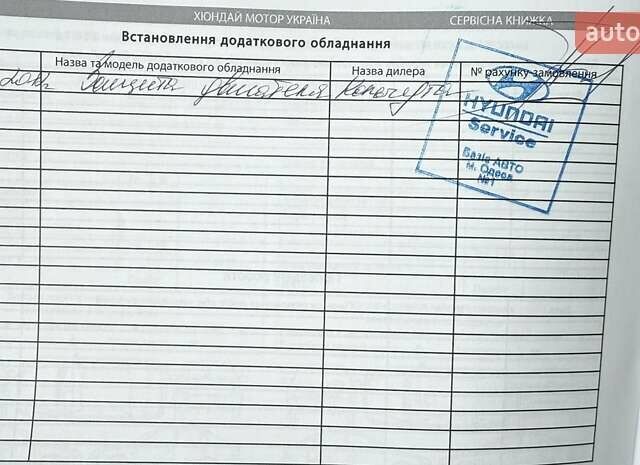 ХЮНДАЙ МОТОР УКРАЇНА СЕРВІСНА КНИЖКА
auto
Встановлення додаткового обладнання
Назва та модель додаткового обладнання Назва дилера № рахунку-замовлення
Защита двигателя
HYUNDAI
Service
Базіс АВТО
м. Одеса
№1